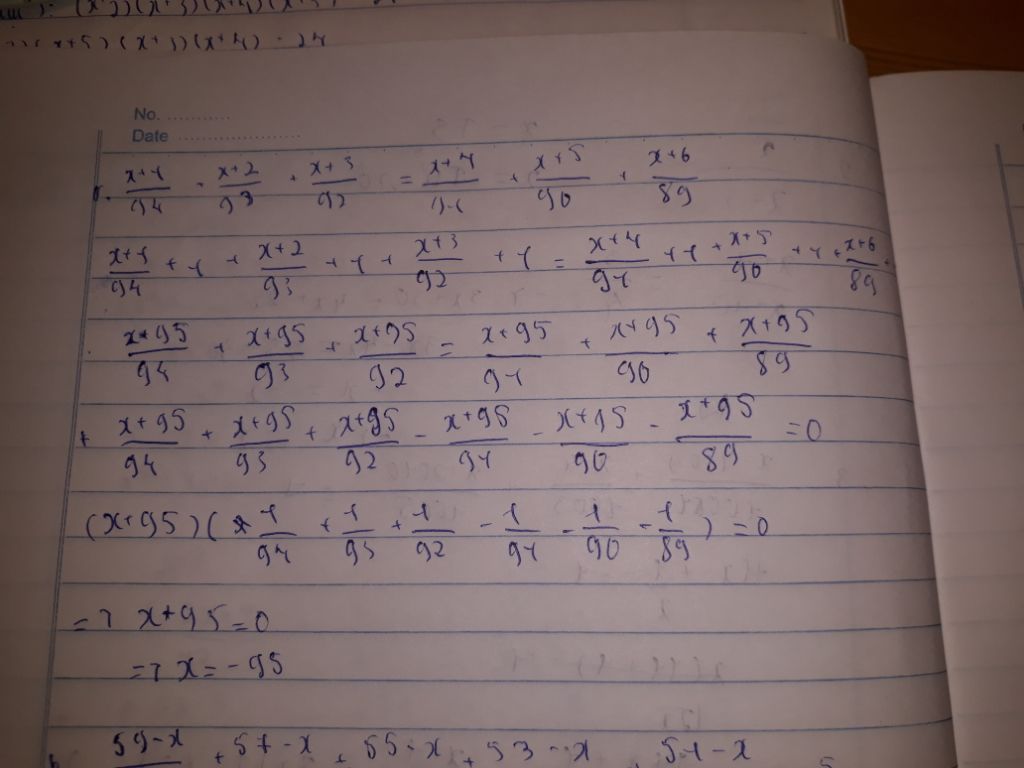 (x+5)(x+3)(x+4) - 24
No. ...........
Date ......................
x+1/94 + x+2/93 + x+3/92 = x+4/91 + x+5/90 + x+6/89
x+1/94 + 1 + x+2/93 + 1 + x+3/92 + 1 = x+4/91 + 1 + x+5/90 + 1 + x+6/89
x+95/94 + x+95/93 + x+95/92 = x+95/91 + x+95/90 + x+95/89
x+95/94 + x+95/93 + x+95/92 - x+95/91 - x+95/90 - x+95/89 = 0
(x+95)(1/94 + 1/93 + 1/92 - 1/91 - 1/90 - 1/89) = 0
=> x+95=0
=> x=-95
59-x + 57-x + 55-x + 53-x + 51-x